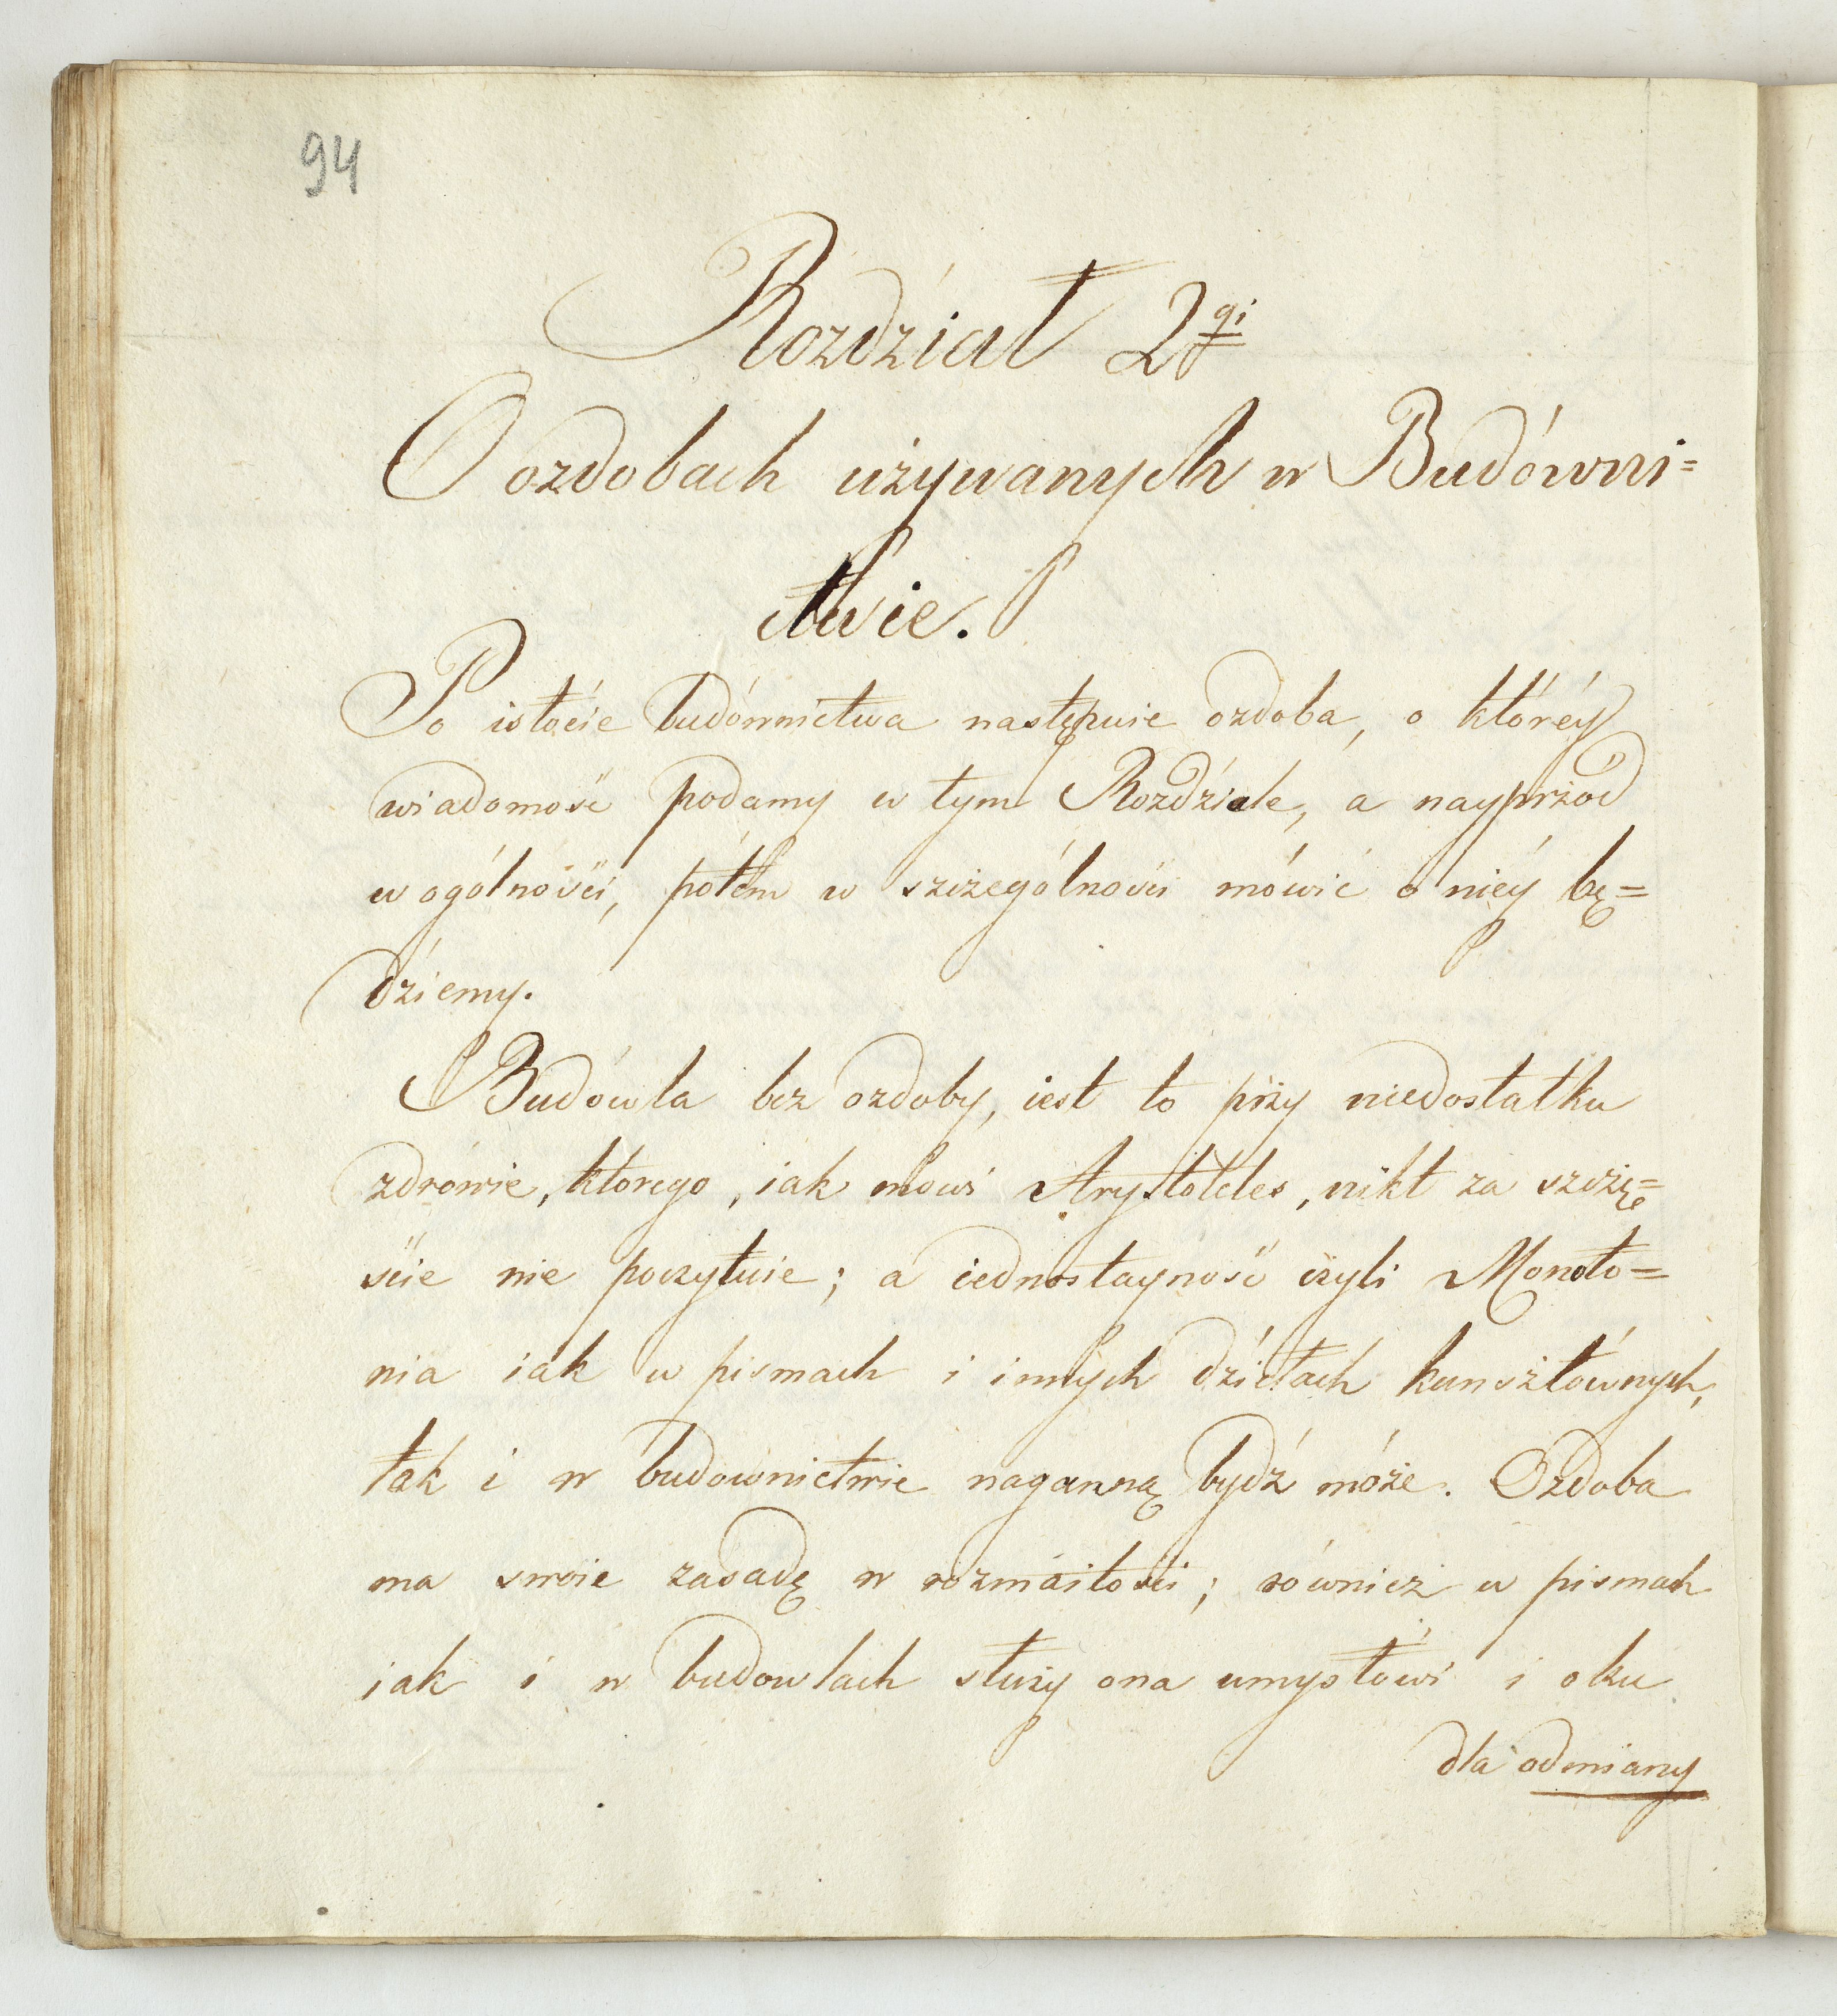 94
Rozdział 2gi
O ozdobach używanych w Budówni=
ctwie.
Po istocie budównictwa następuie ozdoba, o któréy
wiadomość podamy w tym Rozdziale, a nayprzód
w ogólności, potém w szczególności mówić o niéy bę=
dziemy.
Budówla bez ozdoby, iest to przy niedostatku
zdrówie, którego, iak mówi Arystoteles, nikt za szczę=
ście nie poczytuie; a iednostayność czyli Monoto=
nia iak w pismach i innych dziełach kunsztównych,
tak i w budównictwie naganną bydź może. Ozdoba
ma swoie zasadę w rozmaitości; równiez w pismach
iak i w budowlach służy ona umysłowi i oku
dla odmiany